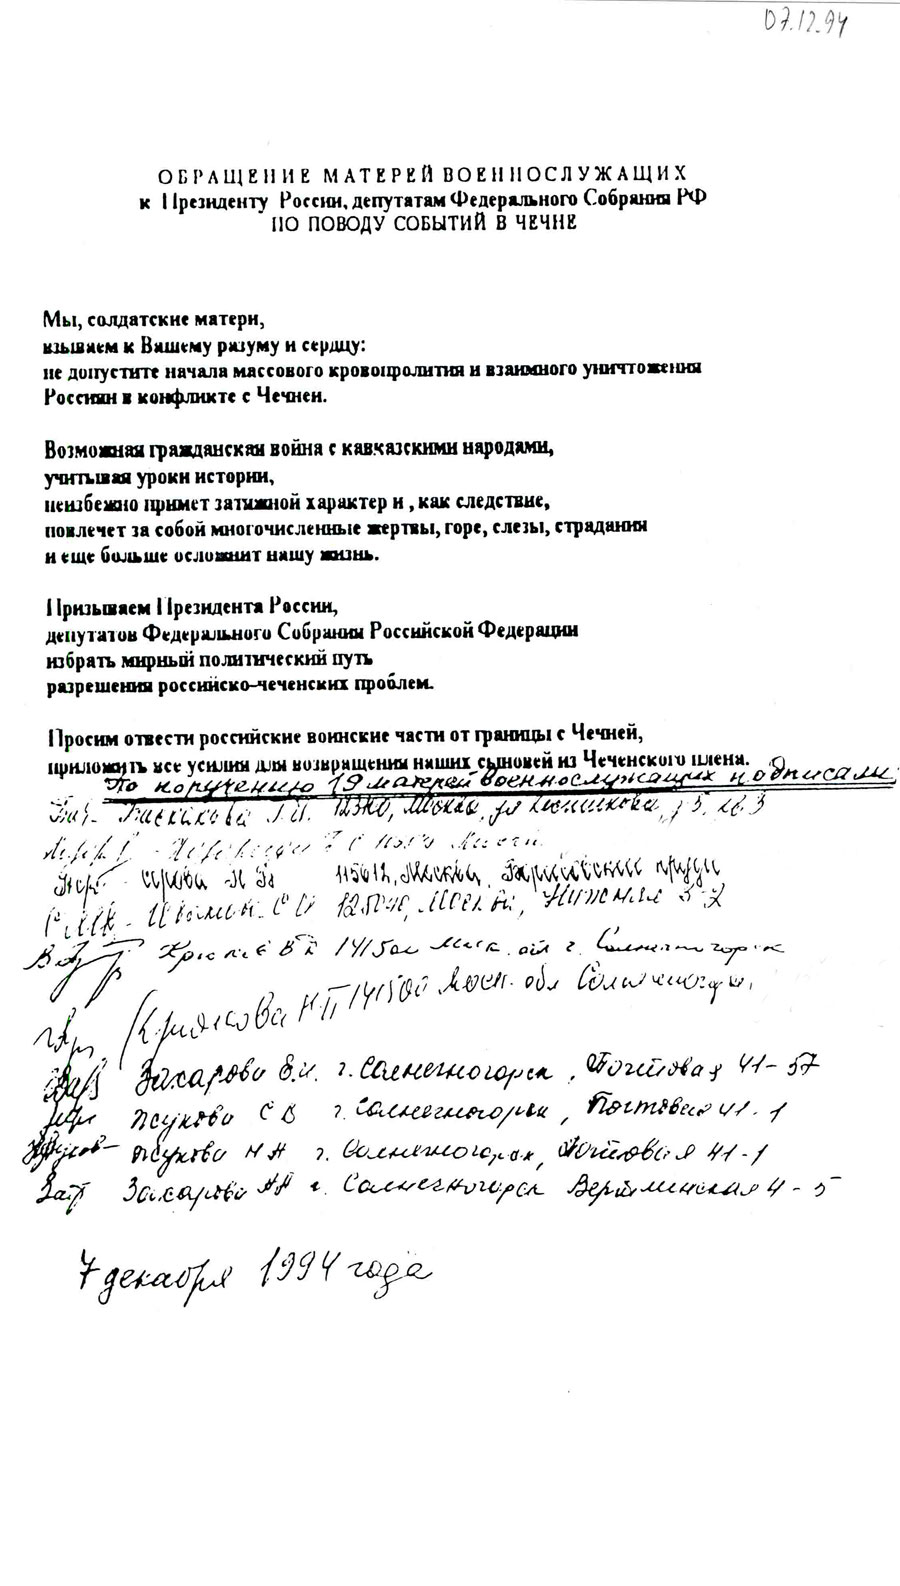 07.12.94
ОБРАЩЕНИЕ МАТЕРЕЙ ВОЕННОСЛУЖАЩИХ
к Президенту России, депутатам Федерального Собрания РФ
ПО ПОВОДУ СОБЫТИЙ В ЧЕЧНЕ
Мы, солдатские матери,
взываем к Вашему разуму и сердцу:
не допустите начала массового кровопролития и взаимного уничтожения
Россиян в конфликте с Чечней.
Возможная гражданская война с кавказскими народами,
учитывая уроки истории,
неизбежно примет затяжной характер и , как следствие,
повлечет за собой многочисленные жертвы, горе, слезы, страдания
и еще больше осложнит нашу жизнь.
Призываем Президента России,
депутатов Федерального Собрания Российской Федерации
избрать мирный политический путь
разрешения российско-чеченских проблем.
Просим отвести российские воинские части от границы с Чечней,
приложить все усилия для возвращения наших сыновей из Чеченского плена.
По поручению 19 матерей военнослужащих подписали:
Москва, ул
115612, Москва,
Москва, Нижняя 5-2
141500 Моск. обл г. Солнечногорск
Крюкова Н П 141500 Моск. обл Солнечногорск,
Захарова Е.И. г. Солнечногорск, Почтовая 41-57
Жукова С В г. Солнечногорск, Почтовая 41-1
Жукова Н А г. Солнечногорск, Почтовая 41-1
Захарова А А г. Солнечногорск Вертлинская 4-5
7 декабря 1994 года